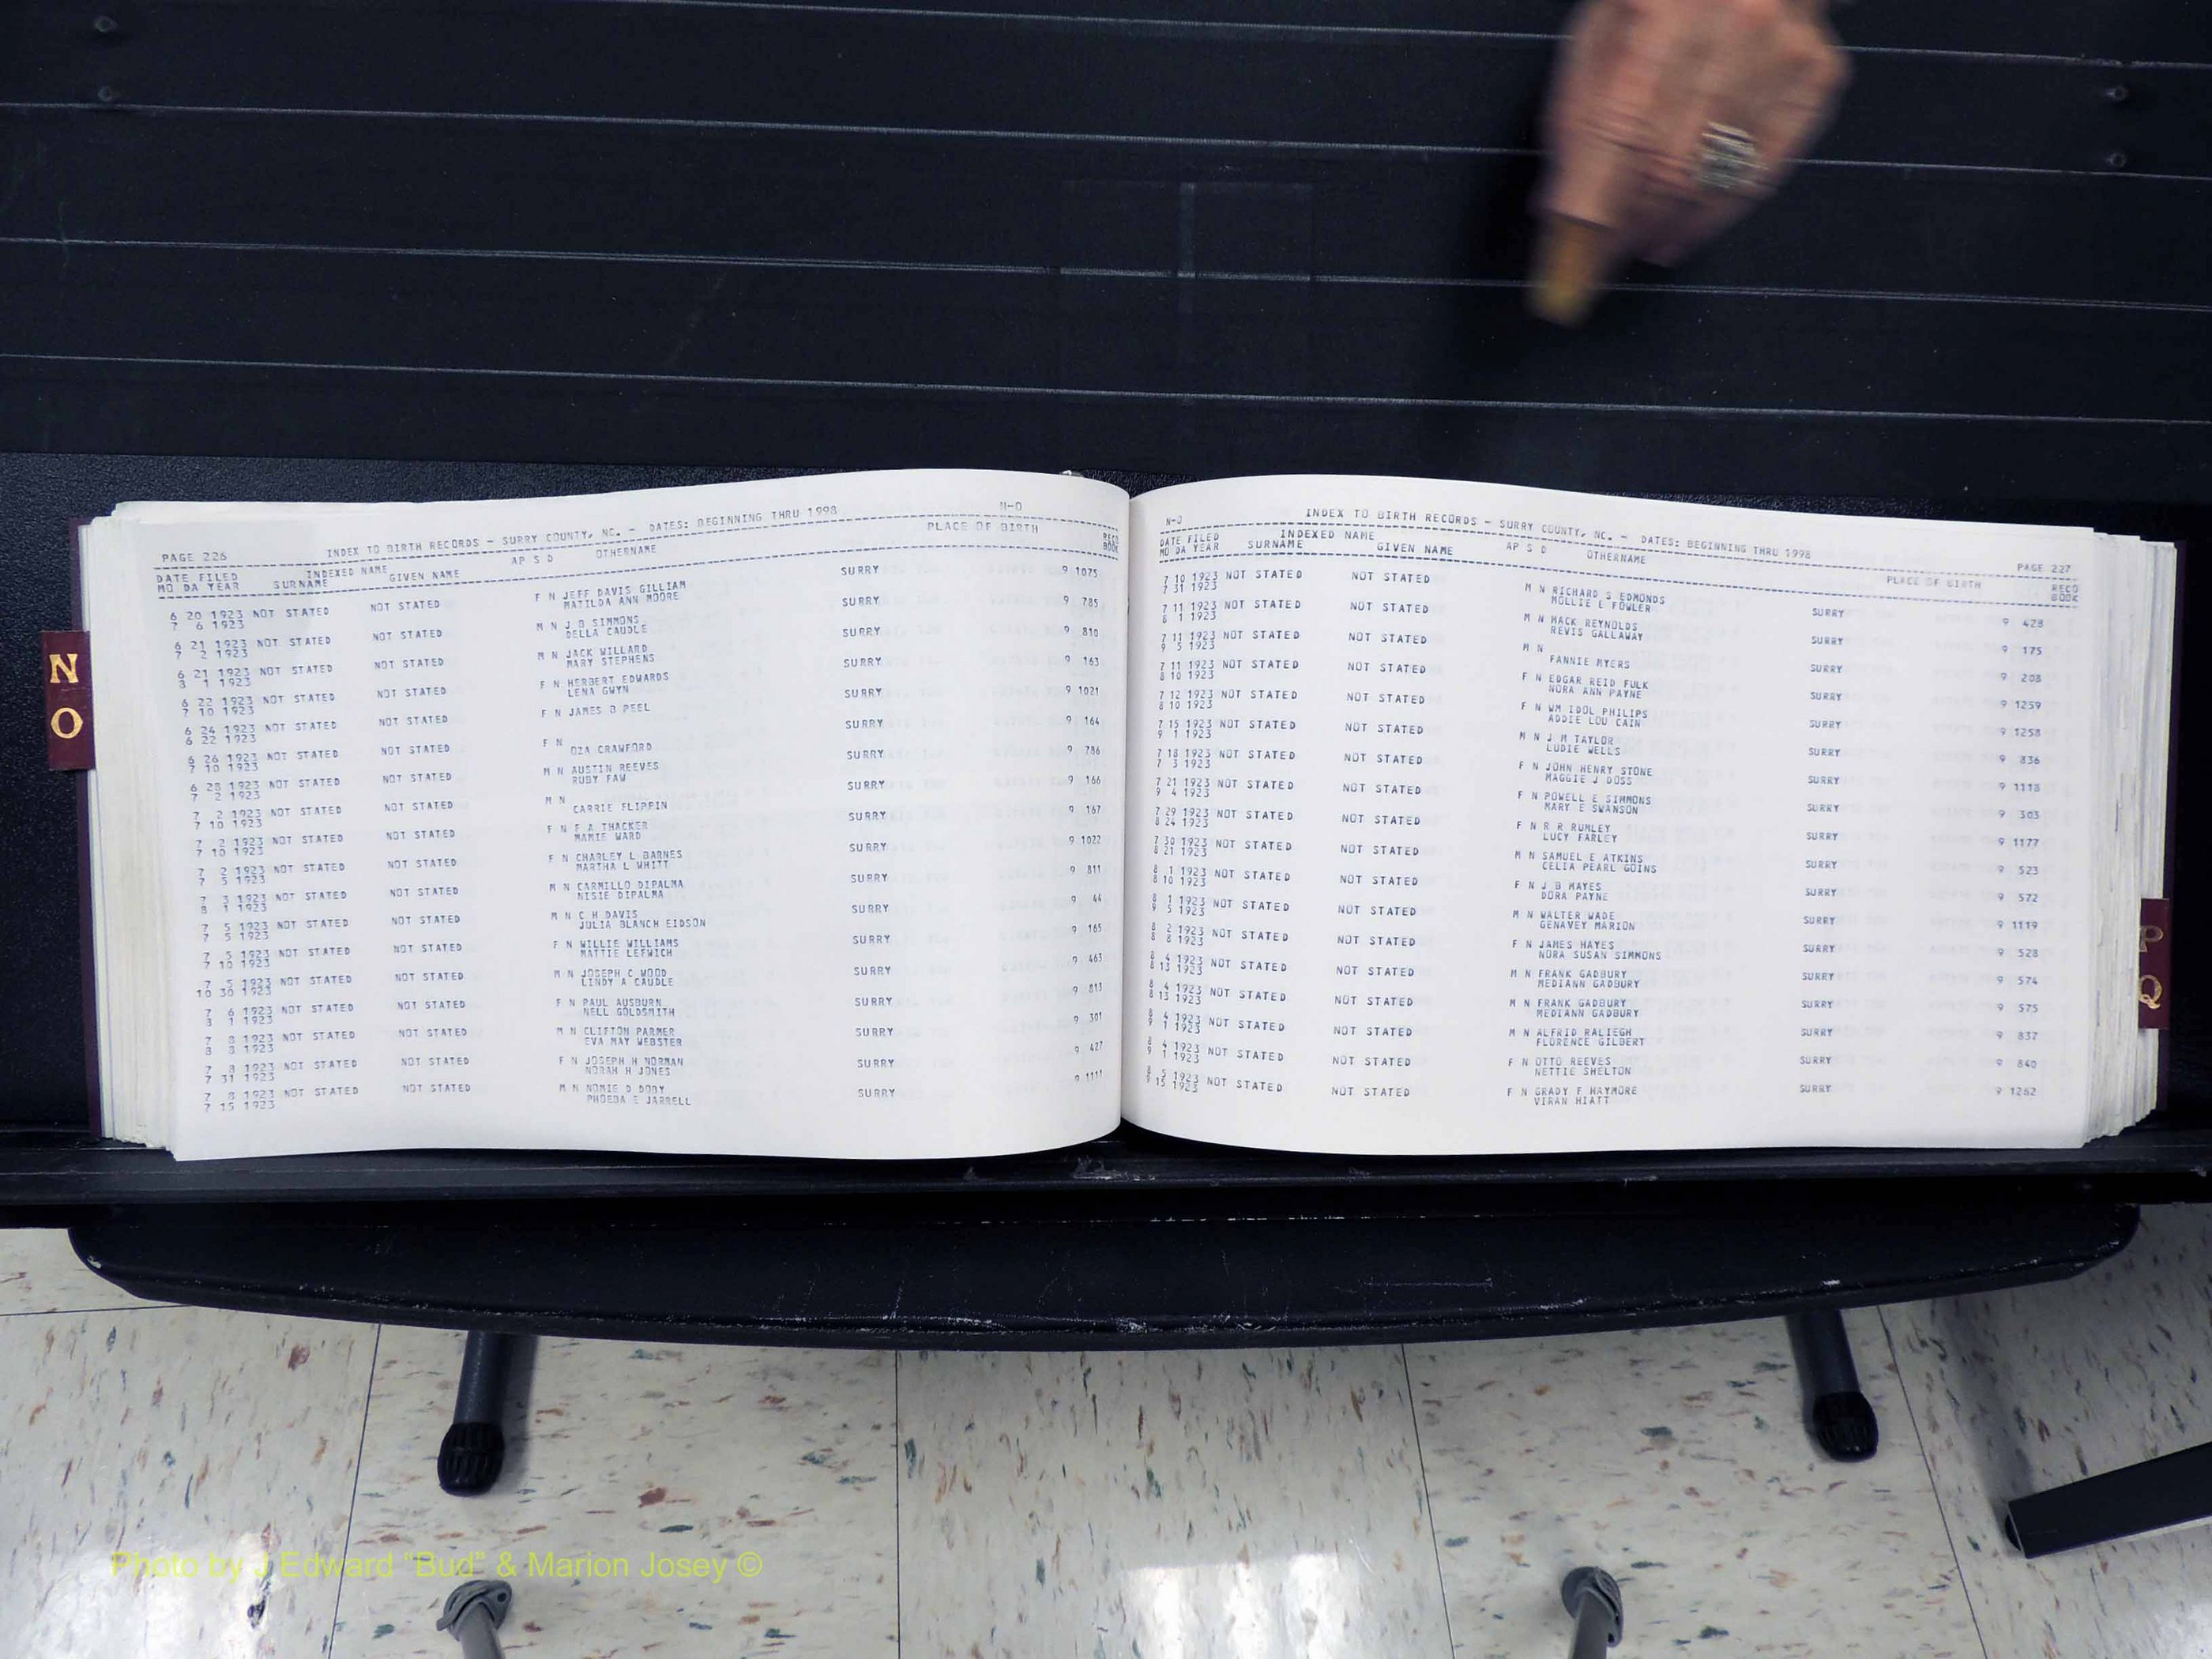 N
O
PAGE 226 INDEX TO BIRTH RECORDS - SURRY COUNTY, NC. - DATES: BEGINNING THRU 1998 N-O
DATE FILED INDEXED NAME AP S D OTHERNAME PLACE OF BIRTH RECO
MO DA YEAR SURNAME GIVEN NAME BOOK
6 20 1923 NOT STATED NOT STATED F N JEFF DAVIS GILLIAM SURRY 9 1075
7 6 1923 MATILDA ANN MOORE
6 21 1923 NOT STATED NOT STATED M N J B SIMMONS SURRY 9 785
7 2 1923 DELLA CAUDLE
6 21 1923 NOT STATED NOT STATED M N JACK WILLARD SURRY 9 810
8 1 1923 MARY STEPHENS
6 22 1923 NOT STATED NOT STATED F N HERBERT EDWARDS SURRY 9 163
7 10 1923 LENA GWYN
6 24 1923 NOT STATED NOT STATED F N JAMES B PEEL SURRY 9 1021
6 22 1923
6 26 1923 NOT STATED NOT STATED F N SURRY 9 164
7 10 1923 OZA CRAWFORD
6 28 1923 NOT STATED NOT STATED M N AUSTIN REEVES SURRY 9 786
7 2 1923 RUBY FAW
7 2 1923 NOT STATED NOT STATED M N SURRY 9 166
7 10 1923 CARRIE FLIPPIN
7 2 1923 NOT STATED NOT STATED F N F A THACKER SURRY 9 167
7 10 1923 MAMIE WARD
7 2 1923 NOT STATED NOT STATED F N CHARLEY L BARNES SURRY 9 1022
7 5 1923 MARTHA L WHITT
7 3 1923 NOT STATED NOT STATED M N CARMILLO DIPALMA SURRY 9 811
8 1 1923 NISIE DIPALMA
7 5 1923 NOT STATED NOT STATED M N C H DAVIS SURRY 9 44
7 5 1923 JULIA BLANCH EIDSON
7 5 1923 NOT STATED NOT STATED F N WILLIE WILLIAMS SURRY 9 165
7 10 1923 MATTIE LEFWICH
7 5 1923 NOT STATED NOT STATED M N JOSEPH C WOOD SURRY 9 463
10 30 1923 LINDY A CAUDLE
7 6 1923 NOT STATED NOT STATED F N PAUL AUSBURN SURRY 9 813
8 1 1923 NELL GOLDSMITH
7 8 1923 NOT STATED NOT STATED M N CLIFTON PARMER SURRY 9 301
8 3 1923 EVA MAY WEBSTER
7 8 1923 NOT STATED NOT STATED F N JOSEPH H NORMAN SURRY 9 427
7 31 1923 NORAH H JONES
7 8 1923 NOT STATED NOT STATED M N NOMIE D DOBY SURRY 9 1111
7 15 1923 PHOEBA E JARRELL
N-O INDEX TO BIRTH RECORDS - SURRY COUNTY, NC. - DATES: BEGINNING THRU 1998 PAGE 227
DATE FILED INDEXED NAME AP S D OTHERNAME PLACE OF BIRTH RECO
MO DA YEAR SURNAME GIVEN NAME BOOK
7 10 1923 NOT STATED NOT STATED M N RICHARD S EDMONDS SURRY 9 428
7 31 1923 MOLLIE L FOWLER
7 11 1923 NOT STATED NOT STATED M N MACK REYNOLDS SURRY 9 175
8 1 1923 REVIS GALLAWAY
7 11 1923 NOT STATED NOT STATED M N SURRY 9 208
9 5 1923 FANNIE MYERS
7 11 1923 NOT STATED NOT STATED F N EDGAR REID FULK SURRY 9 1259
8 10 1923 NORA ANN PAYNE
7 12 1923 NOT STATED NOT STATED F N WM IDOL PHILIPS SURRY 9 1258
8 10 1923 ADDIE LOU CAIN
7 15 1923 NOT STATED NOT STATED M N J M TAYLOR SURRY 9 836
9 1 1923 LUDIE WELLS
7 18 1923 NOT STATED NOT STATED F N JOHN HENRY STONE SURRY 9 1118
7 3 1923 MAGGIE J DOSS
7 21 1923 NOT STATED NOT STATED F N POWELL E SIMMONS SURRY 9 303
9 4 1923 MARY E SWANSON
7 29 1923 NOT STATED NOT STATED F N R R RUMLEY SURRY 9 1177
8 24 1923 LUCY FARLEY
7 30 1923 NOT STATED NOT STATED M N SAMUEL E ATKINS SURRY 9 523
8 21 1923 CELIA PEARL GOINS
8 1 1923 NOT STATED NOT STATED F N J B HAYES SURRY 9 572
8 10 1923 DORA PAYNE
8 1 1923 NOT STATED NOT STATED M N WALTER WADE SURRY 9 1119
9 5 1923 GENAVEY MARION
8 2 1923 NOT STATED NOT STATED F N JAMES HAYES SURRY 9 528
8 8 1923 NORA SUSAN SIMMONS
8 4 1923 NOT STATED NOT STATED M N FRANK GADBURY SURRY 9 574
8 13 1923 MEDIANN GADBURY
8 4 1923 NOT STATED NOT STATED M N FRANK GADBURY SURRY 9 575
8 13 1923 MEDIANN GADBURY
8 4 1923 NOT STATED NOT STATED M N ALFRID RALIEGH SURRY 9 837
9 1 1923 FLORENCE GILBERT
8 4 1923 NOT STATED NOT STATED F N OTTO REEVES SURRY 9 840
9 1 1923 NETTIE SHELTON
8 5 1923 NOT STATED NOT STATED F N GRADY F HAYMORE SURRY 9 1262
9 15 1923 VIRAN HIATT
P
Q
Photo by J Edward "Bud" & Marion Josey ©